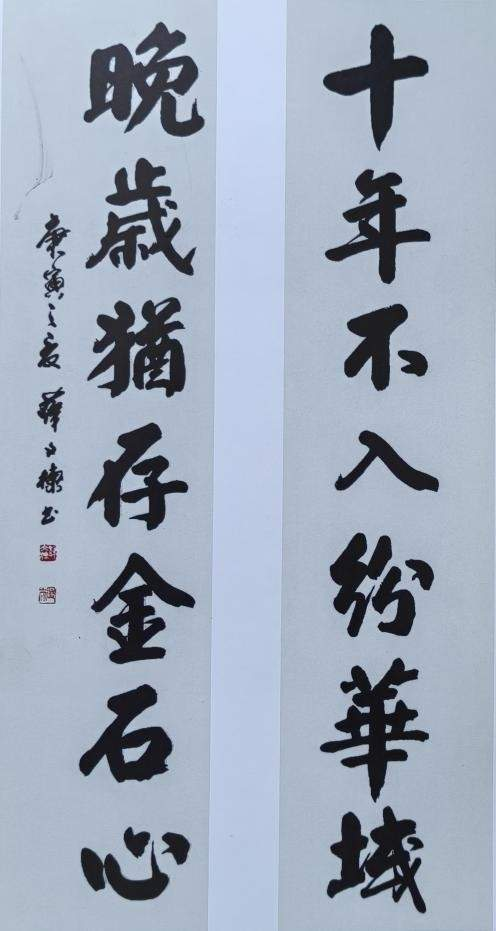 十年不入紛華域
晚歲猶存金石心
庚寅之夏 薛夫彬書